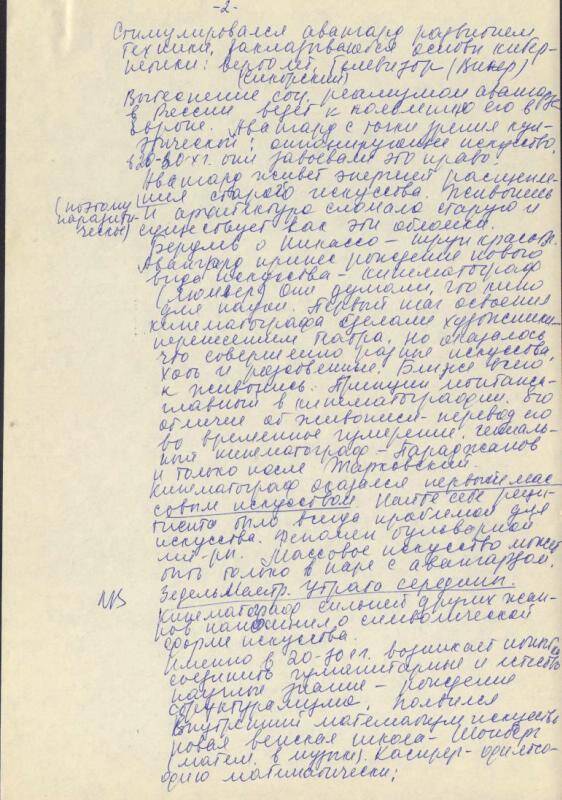 -2-
Стимулировался авангард развитием
техники, закладываются основы кибер-
нетики: вертолёт, телевизор (Винер)
(Сикорский)
Вытеснение соц. реализмом авангарда
в России ведёт к появлению его в
Европе. Авангард с точки зрения куль-
турической: оппонирующее искусство,
в 20-30х г. они завоевали это право.
Авангард живёт энергией расщепле-
(поэтому ния старого искусства. Живопись
паразити- и архитектура сломала старую и
ческое) существует как эти обломки.
Бердяев о Пикассо - трупы красоты.
Авангард принёс рождение нового
вида искусства - кинематограф
(Люмьер) Они думали, что кино
для науки. Первый шаг освоения
кинематографа сделали художники -
перенесением театра, но оказалось,
что совершенно разные искусства,
хоть и родственные. Ближе всего
к живописи. Принцип монтажа -
главный в кинематографии. Его
отличие от живописи - перевод его
во временное измерение. Гениаль-
ный кинематограф - Параджанов
и только после Тарковский.
Кинематограф оказался первым мас
совым искусством. Найти себе реци-
пиента было всегда проблемой для
искусства. Феномен бульварной
лит-ры. Массовое искусство может
быть только в паре с авангардом.
Зедельмайр. Утрата середины.
NB Кинематограф сильней других жан-
ров напомнил о символической
форме искусства.
Именно в 20-30 гг. возникает попытка
соединить гуманитарные и естеств
научные знания - рождение
структурализма, появился
внутренний математизм искусства
Новая венская школа - Шонберг
(матем. в музыке). Касирер
математически;